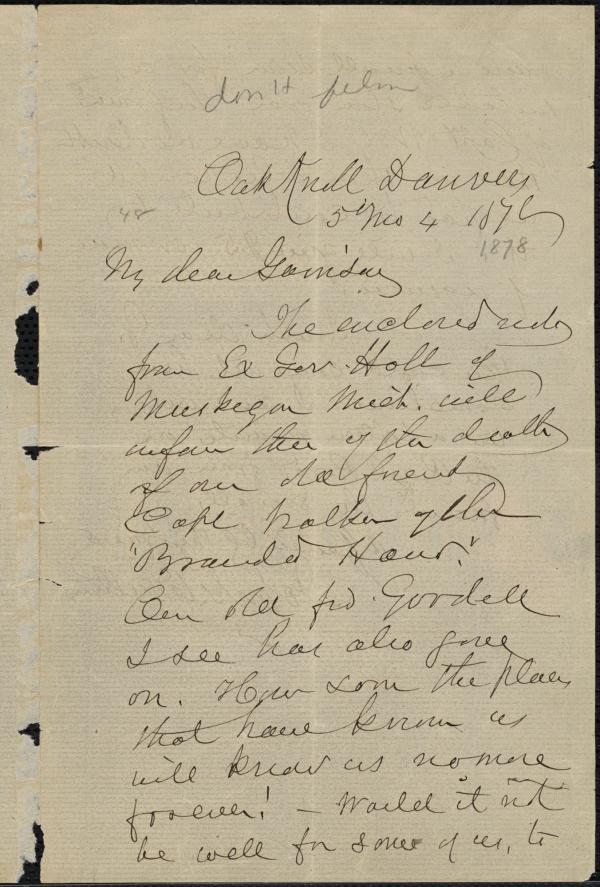 don't film
Oak Knoll Danvers
48
5th Mo 4 1878
1878
My dear Garrison
The enclosed note
from Ex Gov. Holt of
Muskegon Mich. will
inform thee of the death
of our old friend
Capt Walker of the
"Branded Hand."
Our old frd. Goodell
I see has also gone
on. How soon the places
that have known us
will know us no more
forever! — Would it not
be well for some of us, to